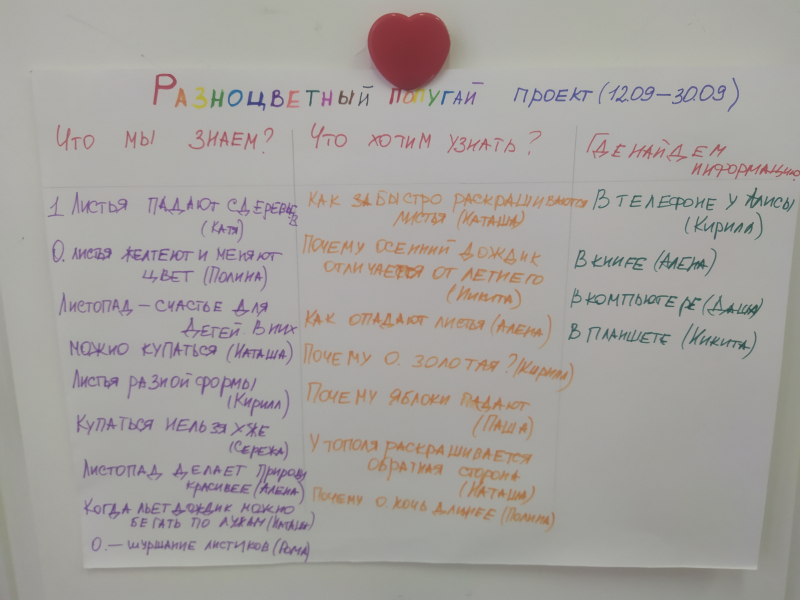 Разноцветный попугай проект (12.09–30.09)
Что мы знаем?
1 Листья падают с деревьев
(Катя)
О. листья желтеют и меняют
цвет (Полина)
Листопад – счастье для
детей в них
можно купаться (Наташа)
Листья разной формы
(Кирилл)
Купаться нельзя уже
(Сережа)
Листопад делает природу
красивее (Алена)
Когда льет дождик можно
бегать по лужам (Наташа)
О. – шуршание листиков (Рома)
Что хотим узнать?
Как забыстро раскрашиваются
листья (Каташа)
Почему осенний дождик
отличается от летнего
(Никита)
Как опадают листья (Алена)
Почему О. золотая? (Кирилл)
Почему яблоки падают
(Паша)
У тополя раскрашивается
обратная сторона
(Наташа)
Почему О. ночь длинее (Полина)
Где найдем
информацию
В телефоне у Алисы
(Кирилл)
В книге (Алена)
В компьютере (Даша)
В планшете (Никита)